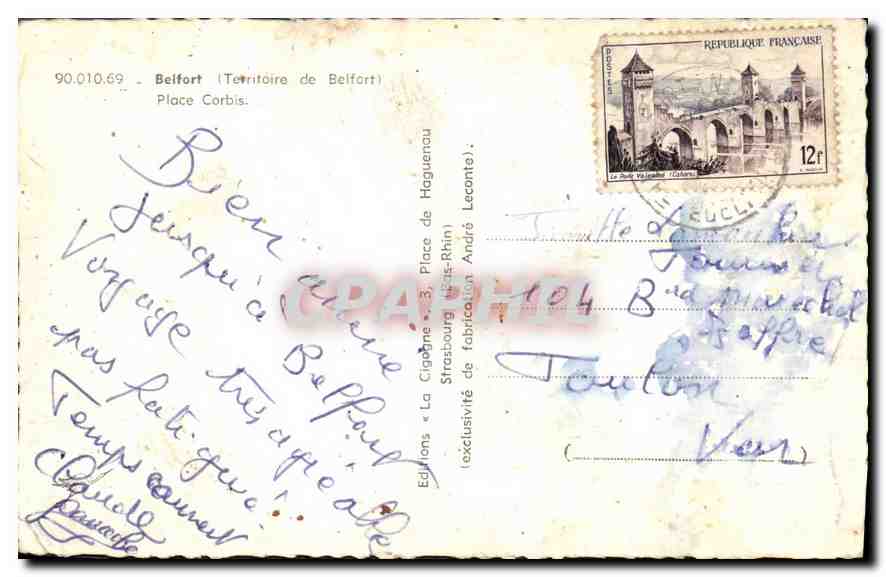 90.010.69 - Belfort (Territoire de Belfort)
Place Corbis.
Bien arrivé
jusqu'à Belfort
Voyage très agréable
pas fatigué..
Temps couvert
Claude
Editions « La Cigogne », 3, Place de Haguenau
Strasbourg (Bas-Rhin)
(exclusivité de fabrication André Leconte).
REPUBLIQUE FRANÇAISE
POSTES
12f
Le Pont Valentré (Cahors)
104 Bd Maréchal
Joffre
Toulon
(Var)
CPARHIL